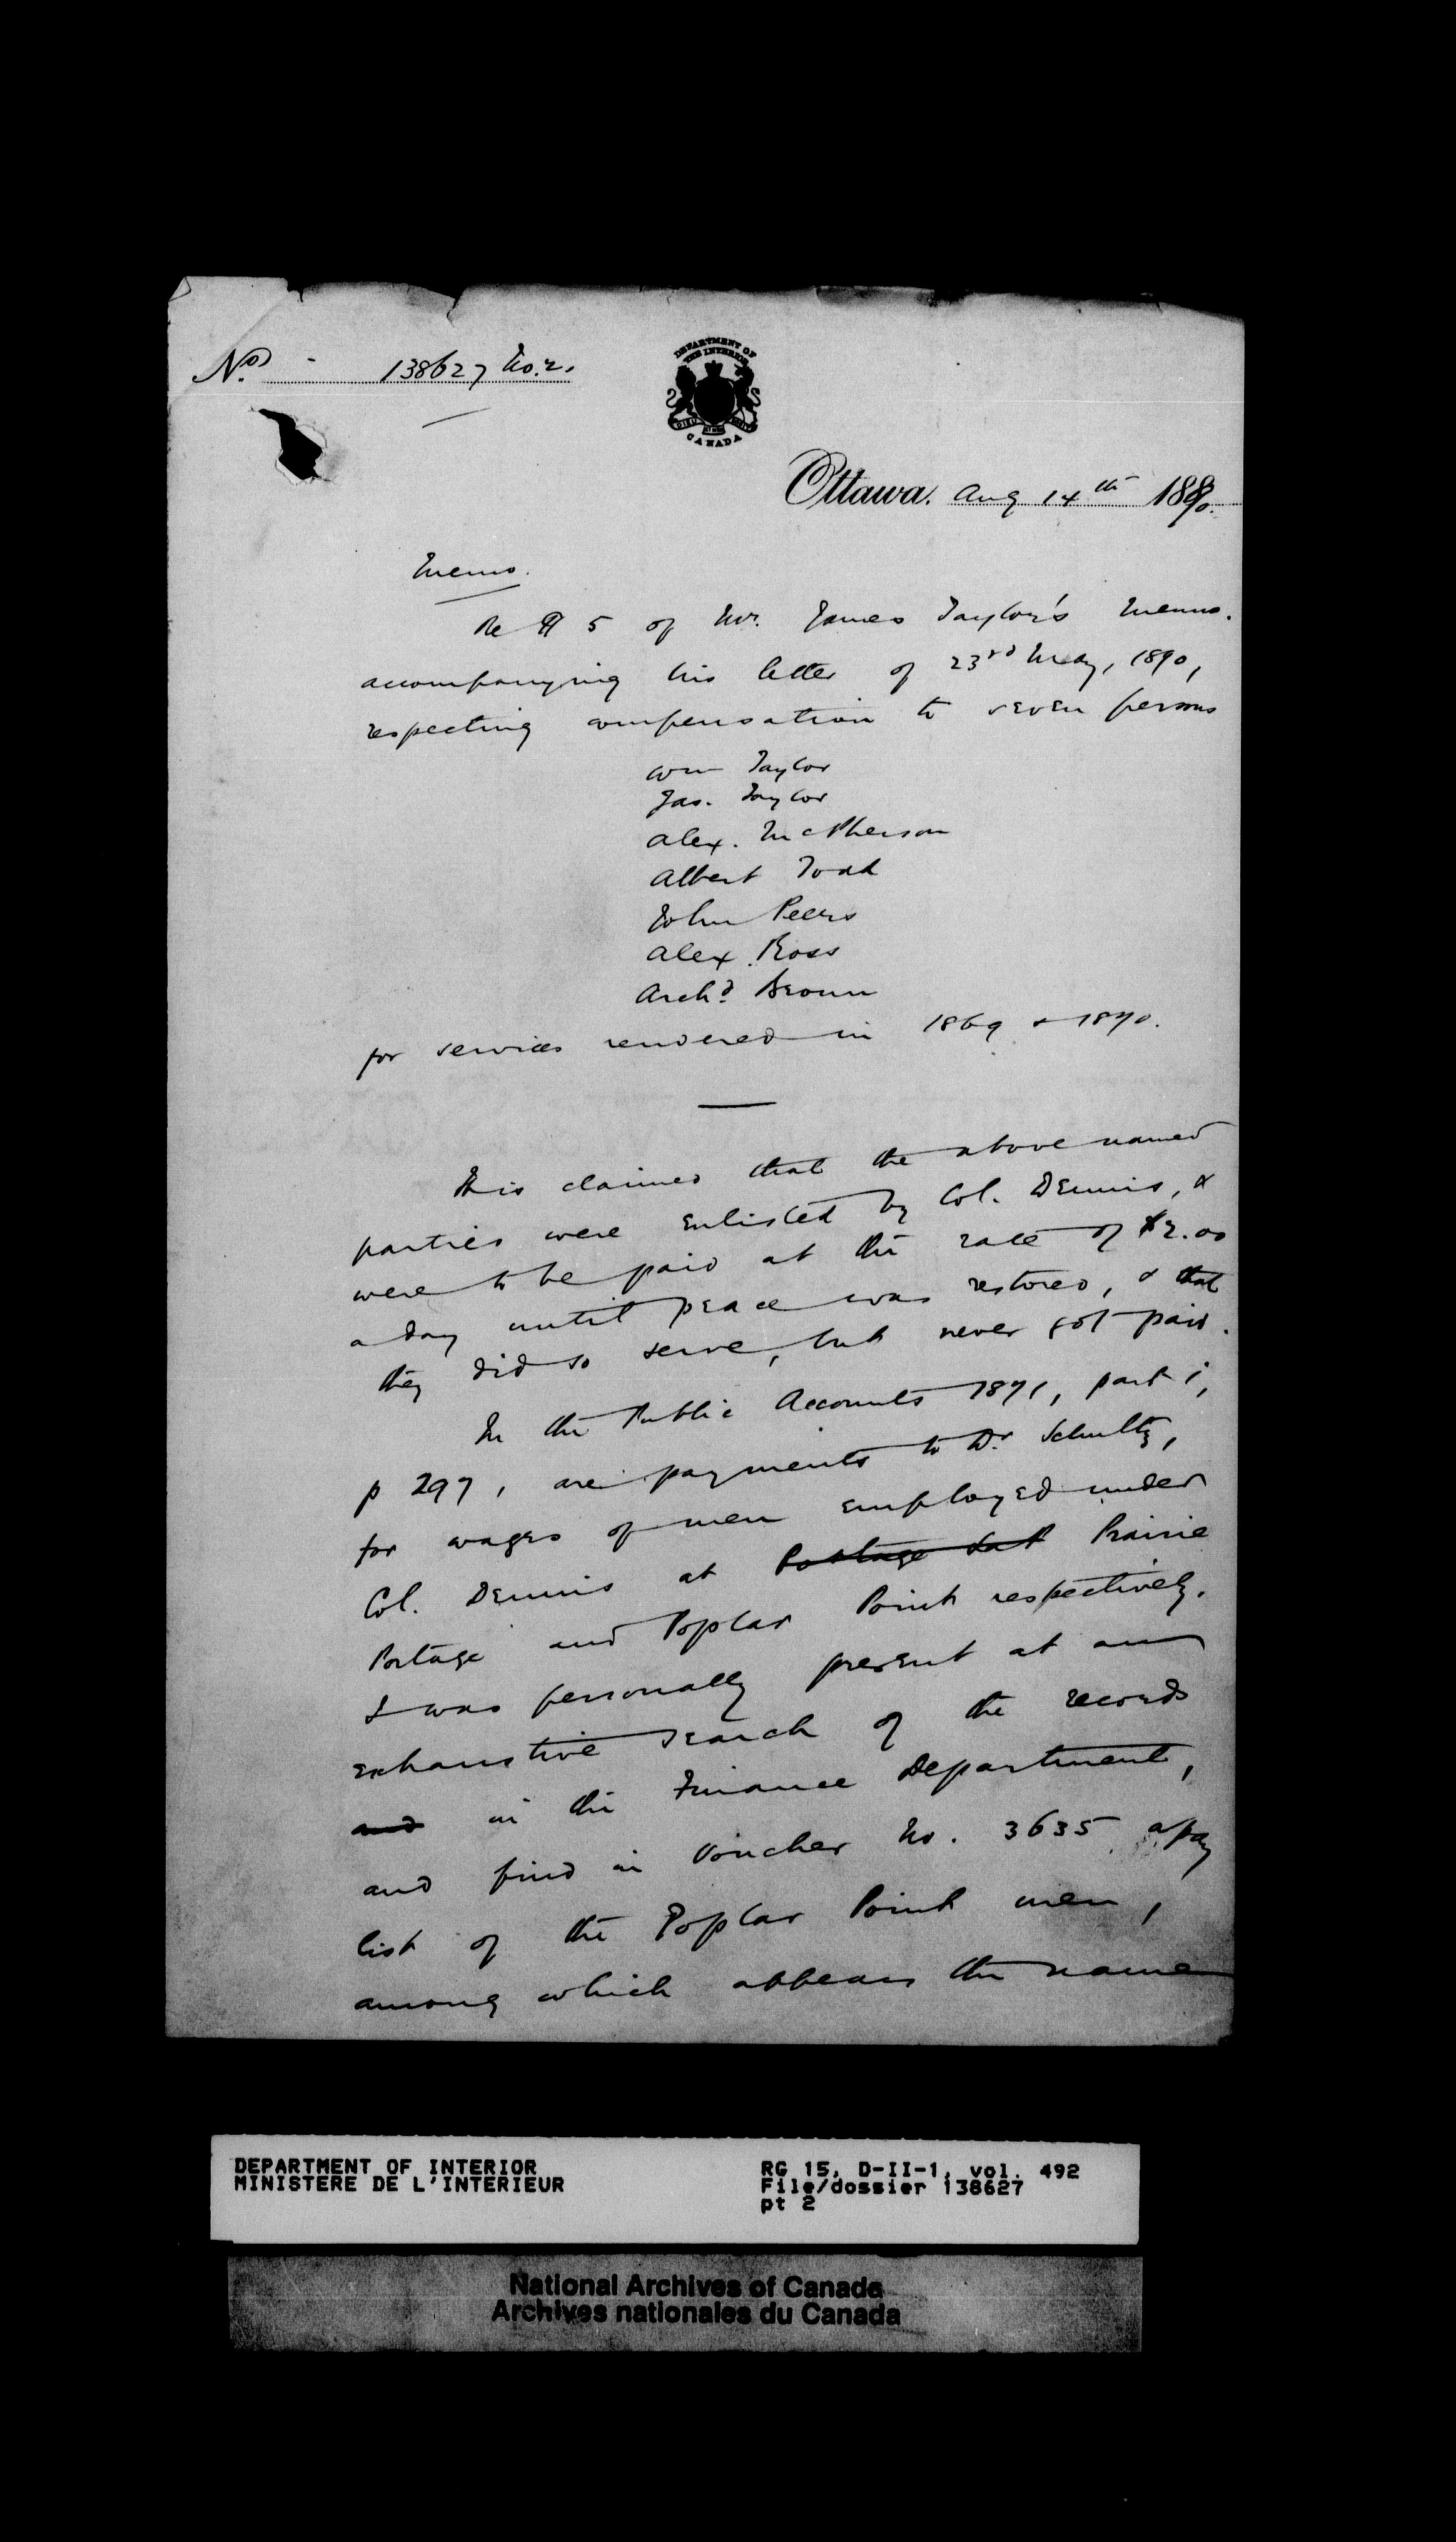 No. - 138627 No. 2.
DEPARTMENT OF
THE INTERIOR
CANADA
Ottawa. Aug 14th 1890.
Memo.
Re ¶ 5 of Mr. James Taylor's Memo.
accompanying his letter of 23rd May, 1890,
respecting compensation to seven persons
Wm Taylor
Jas. Taylor
Alex. McPherson
Albert Todd
John Peers
Alex. Ross
Archd. Brown
for services rendered in 1869 & 1870.
It is claimed that the above named
parties were enlisted by Col. Dennis, &
were to be paid at the rate of $2.00
a day until peace was restored, & that
they did so serve, but never got paid.
In the Public Accounts 1871, part 1,
p 297, are payments to Dr Schultz,
for wages of men employed under
Col. Dennis at Portage Prairie
Portage and Poplar Point respectively.
I was personally present at an
exhaustive search of the records
and in the Finance Department,
and find in Voucher No. 3635 a pay
list of the Poplar Point men,
among which appears the name
DEPARTMENT OF INTERIOR
MINISTERE DE L'INTERIEUR
RG 15, D-II-1, vol. 492
File/dossier 138627
pt 2
National Archives of Canada
Archives nationales du Canada